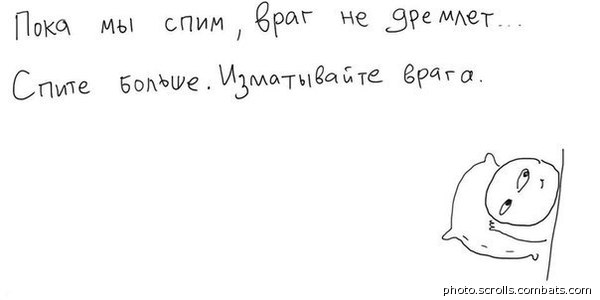 Пока мы спим, враг не дремлет...
Спите больше. Изматывайте врага.
photo.scrolls.combats.com